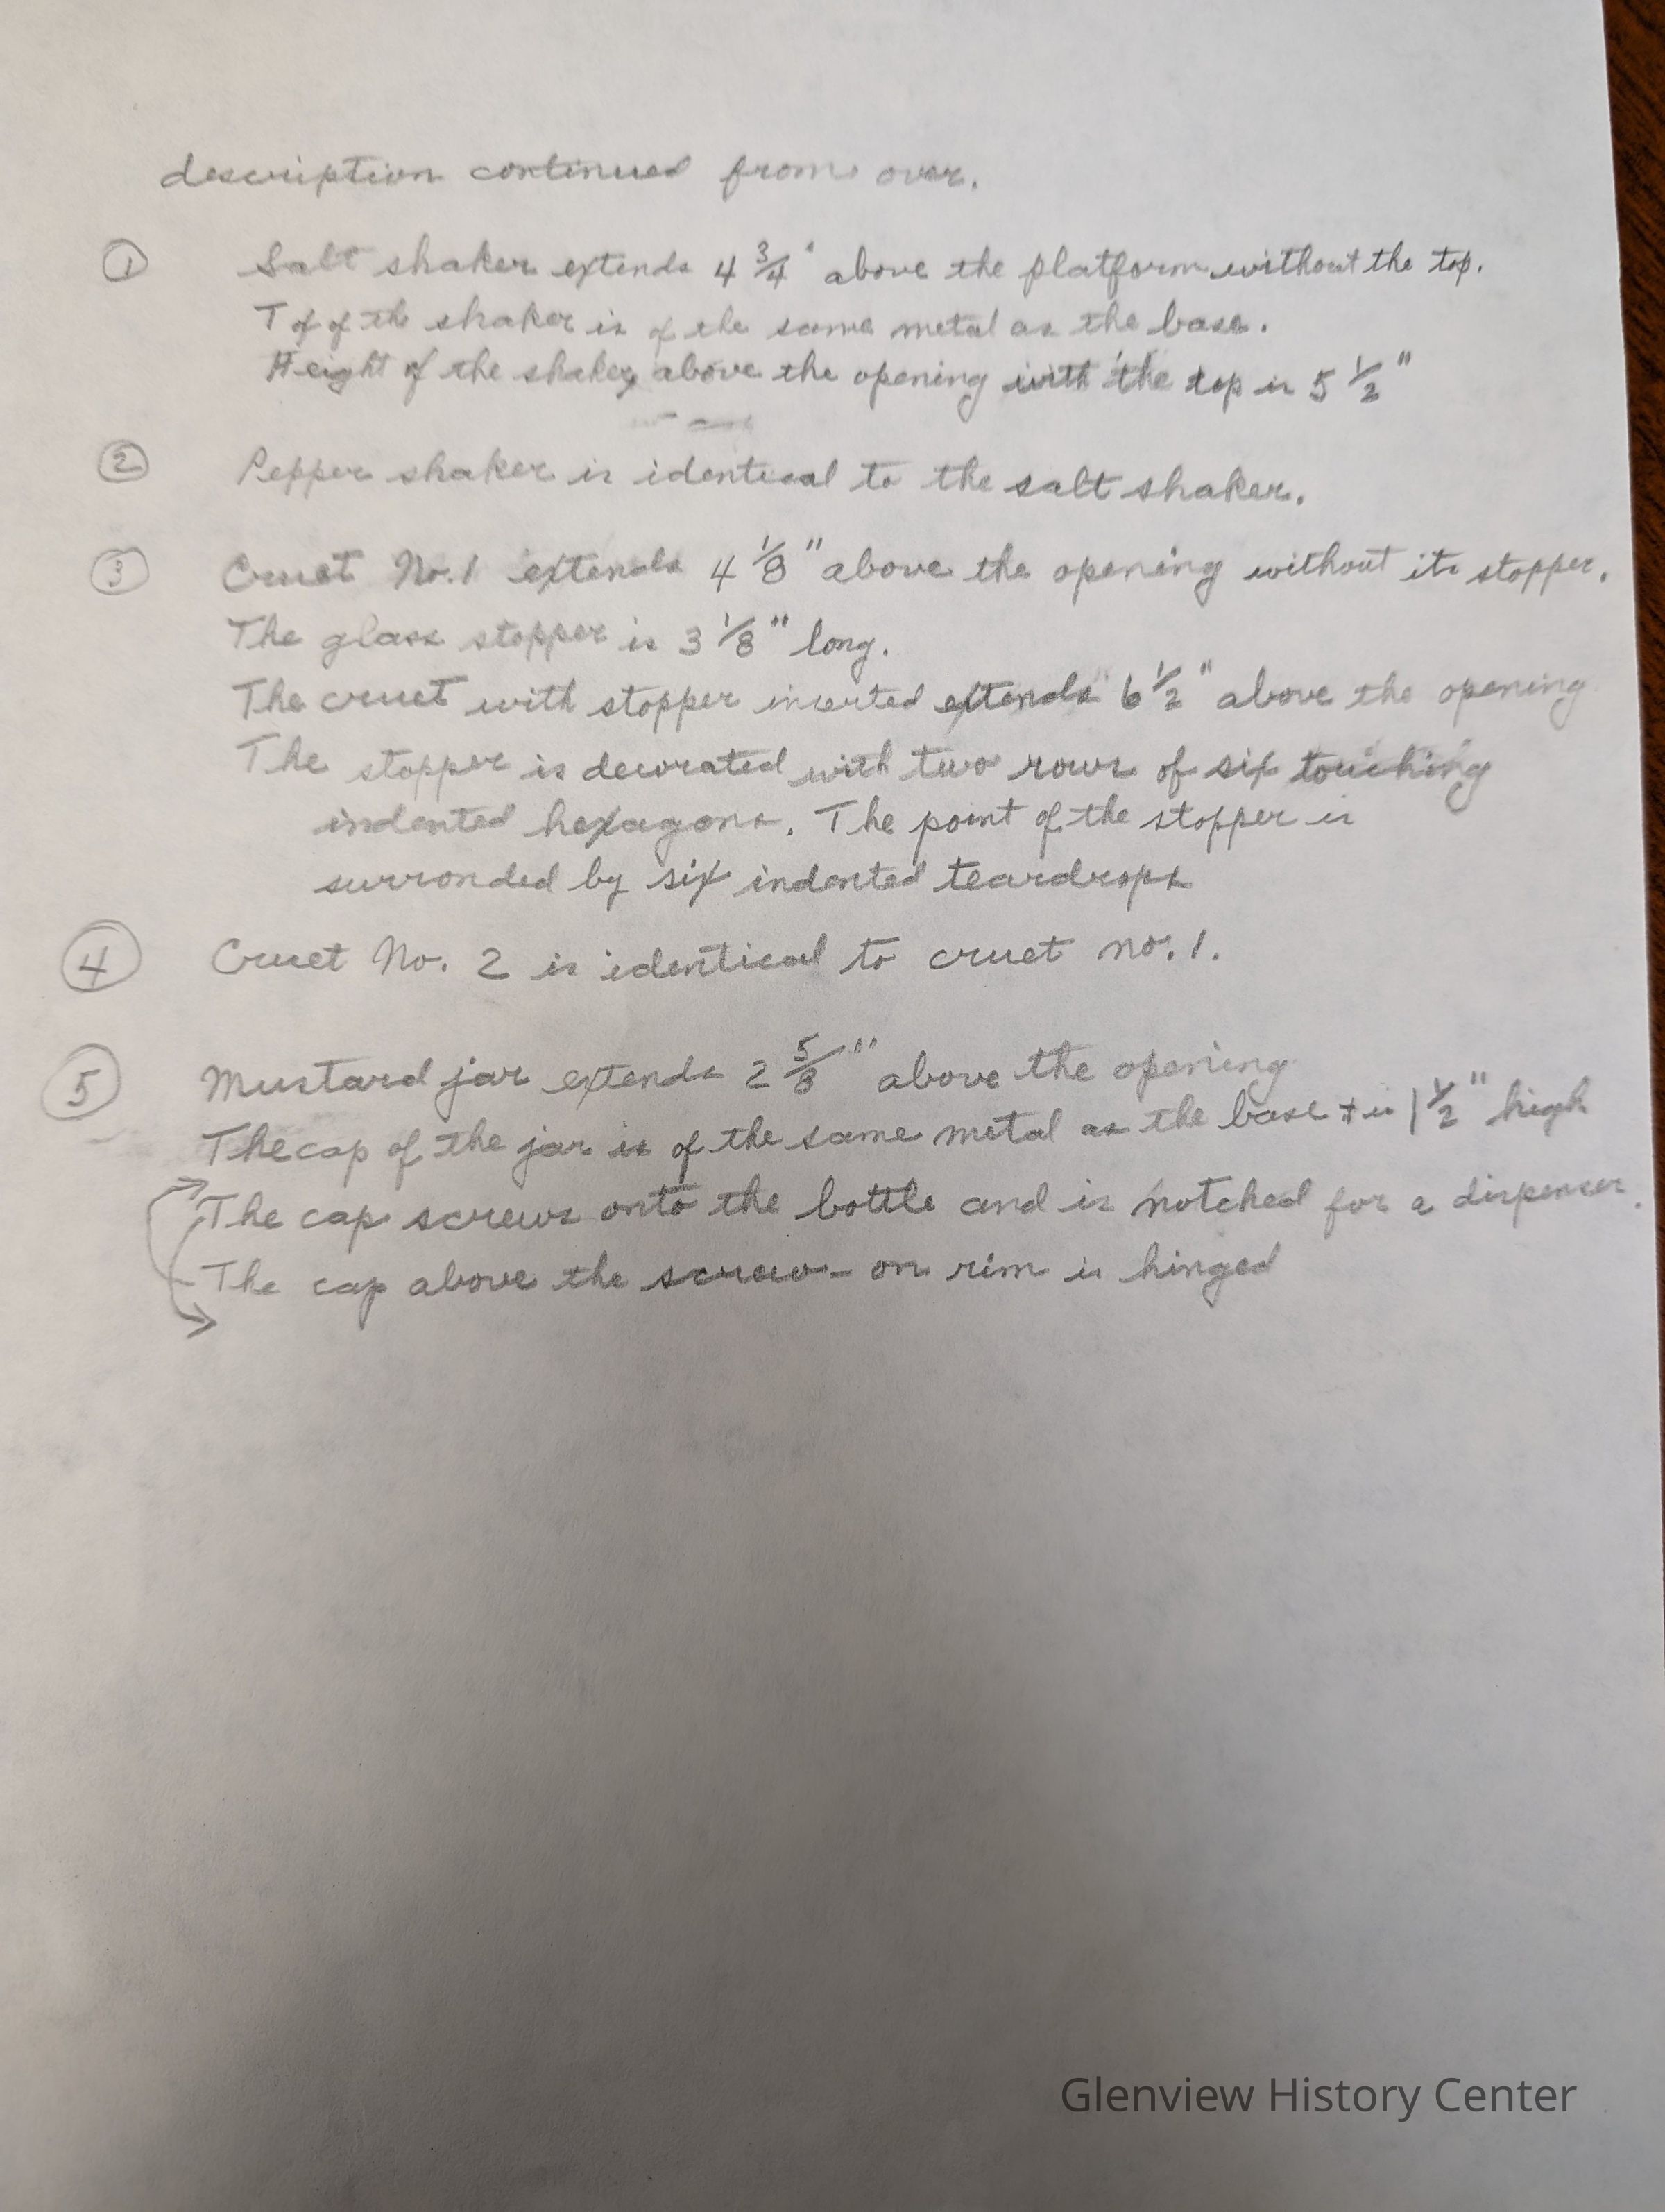 description continued from over.
① Salt shaker extends 4 3/4" above the platform without the top.
Tof of the shaker is of the same metal as the base.
Height of the shaker above the opening with the top is 5 1/2"
② Pepper shaker is identical to the salt shaker.
③ Cruet No. 1 extends 4 1/8" above the opening without its stopper.
The glass stopper is 3 1/8" long.
The cruet with stopper inserted extends 6 1/2" above the opening
The stopper is decorated with two rows of six touching
indented hexagons. The point of the stopper is
surronded by six indented teardrops
④ Cruet No. 2 is identical to cruet no. 1.
⑤ Mustard jar extends 2 5/8" above the opening
The cap of the jar is of the same metal as the base + is 1 1/2" high
The cap screws onto the bottle and is notched for a dispenser.
The cap above the screw-on rim is hinged
Glenview History Center